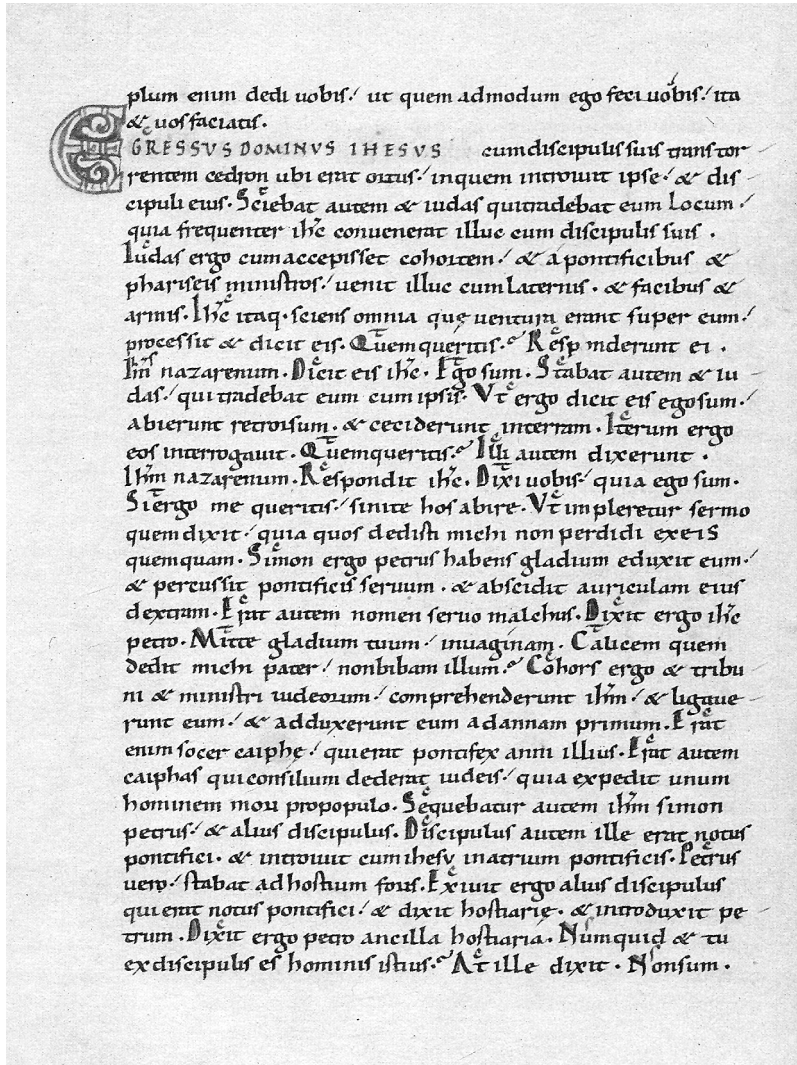 plum enim dedi uobis. ut quem admodum ego feci uobis. ita
& uos faciatis.
EGRESSVS DOMINVS IHESVS cum discipulis suis trans tor
rentem cedron ubi erat ortus. in quem introiuit ipse. & dis
cipuli eius. Sciebat autem & iudas qui tradebat eum Locum.
quia frequenter ihc conuenerat illuc cum discipulis suis.
Iudas ergo cum accepisset cohortem. & a pontificibus &
phariseis ministros. uenit illuc cum laternis. & facibus &
armis. Ihc itaq. sciens omnia quę uentura erant super eum.
processit & dicit eis. Quem queritis. Resp nderunt ei.
Ihm nazarenum. Dicit eis ihc. Ego sum. Stabat autem & iu
das. qui tradebat eum cum ipsis. Vt ergo dicit eis ego sum.
abierunt retrorsum. & ceciderunt in terram. Iterum ergo
eos interrogauit. Quem queritis. Illi autem dixerunt.
Ihm nazarenum. Respondit ihc. Dixi uobis. quia ego sum.
Si ergo me queritis. sinite hos abire. Vt impleretur sermo
quem dixit. quia quos dedisti michi non perdidi ex eis
quemquam. Simon ergo petrus habens gladium eduxit eum.
& percussit pontificis seruum. & abscidit auriculam eius
dextram. Erat autem nomen seruo malchus. Dixit ergo ihc
petro. Mitte gladium tuum. in uaginam. Calicem quem
dedit michi pater. non bibam illum. Cohors ergo & tribu
ni & ministri iudeorum. comprehenderunt ihm. & ligaue
runt eum. & adduxerunt eum ad annam primum. Erat
enim socer caiphę. qui erat pontifex anni illius. Erat autem
caiphas qui consilium dederat iudeis. quia expedit unum
hominem mori pro populo. Sequebatur autem ihm simon
petrus. & alius discipulus. Discipulus autem ille erat notus
pontifici. & introiuit cum ihesu in atrium pontificis. Petrus
uero. stabat ad hostium foris. Exiuit ergo alius discipulus
qui erat notus pontifici. & dixit hostiarię. & introduxit pe
trum. Dixit ergo petro ancilla hostiaria. Numquid & tu
ex discipulis es hominis istius. At ille dixit. Non sum.